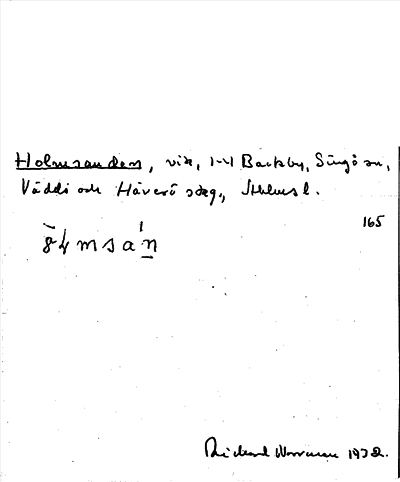 Holmsanden, vik, 1-4 Backby, Singö sn,
Väddö och Häverö skg., Sthlms l.
165
Richard Norrman 1932.